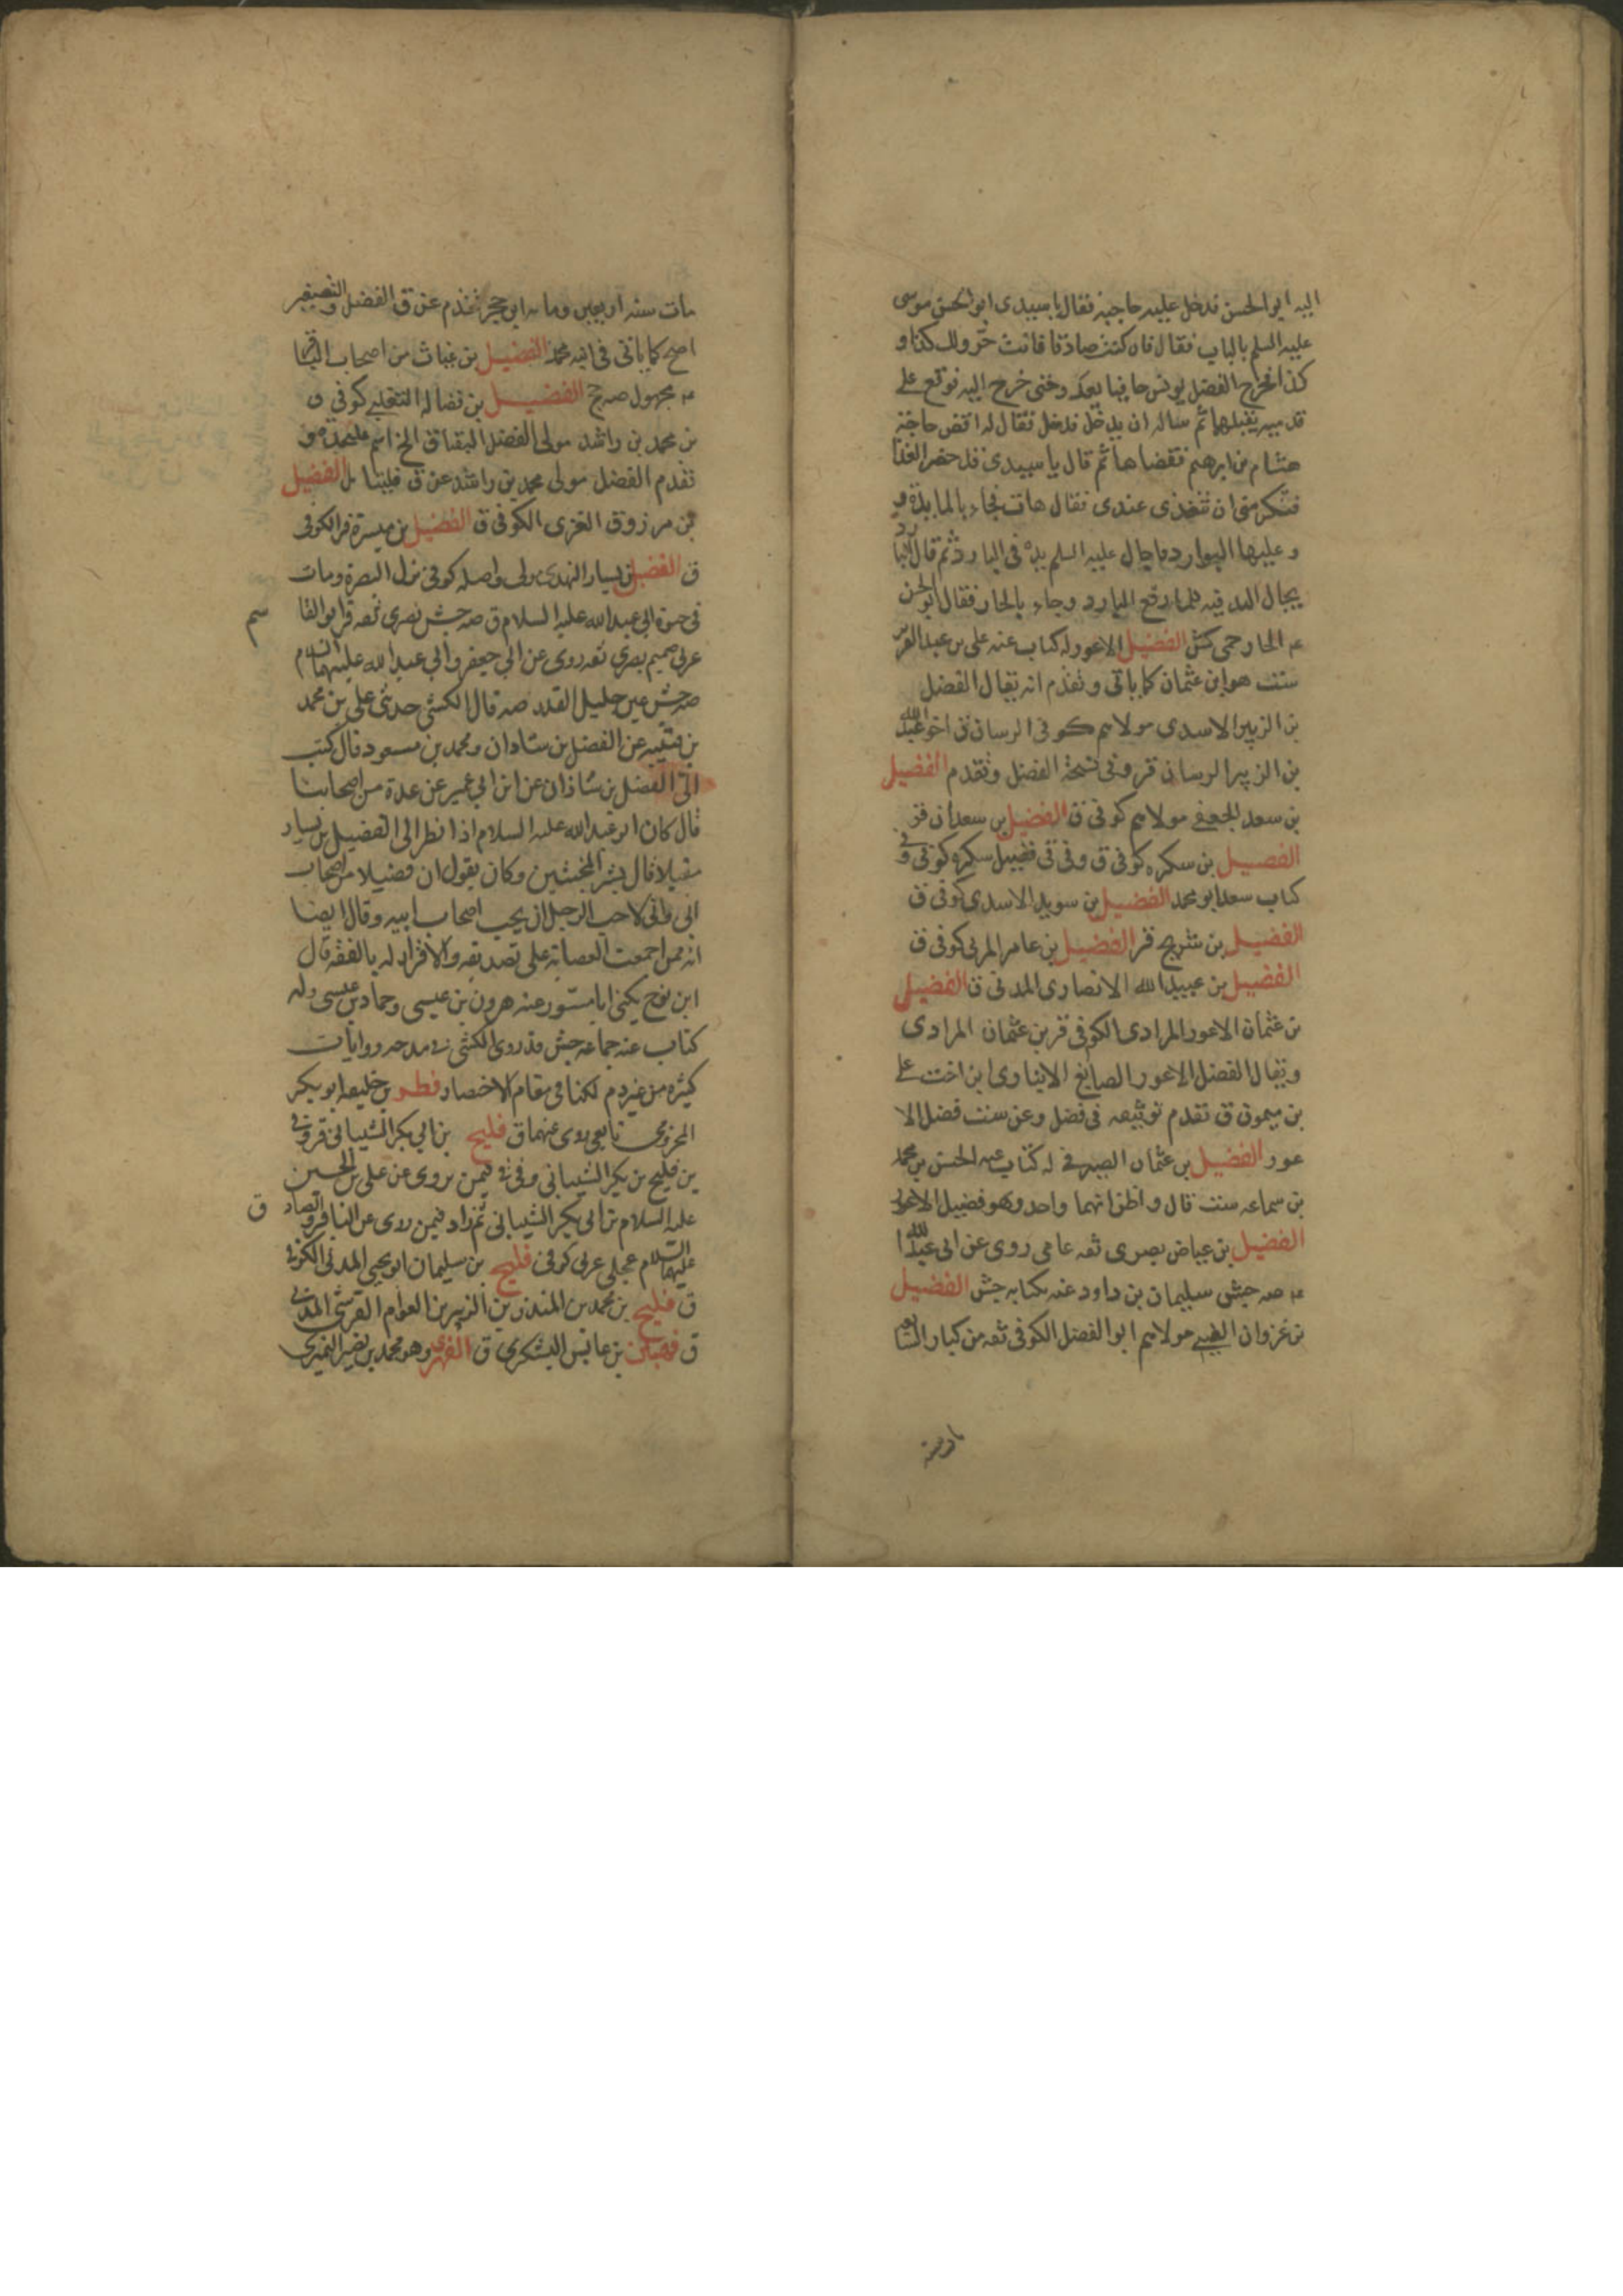 اليه ابو الحسن فدخل عليه حاجبه فقال يا سيدى ابو الحسن موسى
عليه السلم بالباب فقال فان كنت صادقا فانت حر ولك كذا و
كذا فخرج الفضل بن يونس حافيا يعدو حتى خرج اليه فوقع على
قدميه يقبلهما ثم ساله ان يدخل فدخل فقال له اقض حاجة
هشام بن ابرهيم فقضاها ثم قال يا سيدى قد حضر الغذا
فتكرمنى ان تتغذى عندى فقال هات فجاء بالمايدة و
وعليها البوارد فاجال عليه السلم يده فى البارد ثم قال البارد
يجال اليد فيه فلما رفع البارد وجاء بالحار فقال ابو الحسن
عم الحار حمى كش الفضيل الاعور له كتاب عنه على بن عبد العزيز
ست هو ابن عثمان كما ياتى وتقدم انه يقال الفضل
بن الزبير الاسدى مولاهم كوفى الرسان ق اخو عبد الله
بن الزبير الرسان قر وفى نسخة الفضل وتقدم الفضيل
بن سعد الجعفى مولاهم كوفى ق الفضيل بن سعدان قر
الفضيل بن سكره كوفى ق وفى فضيل سكره كوفى و فى
كتاب سعد ابو محمد الفضيل بن سويد الاسدى كوفى ق
الفضيل بن شريح قر الفضيل بن عامر المزنى كوفى ق
الفضيل بن عبيد الله الانصارى المدنى ق الفضيل
بن عثمان الاعور المرادى الكوفى قر بن عثمان المرادى
ويقال الفضل الاعور الصايغ الانبارى ابن اخت على
بن ميمون ق تقدم توثيقه فى فضل وعن ست فضل الا
عور الفضيل بن عثمان الصيرفى له كتاب عنه الحسن بن محمد
بن سماعه ست قال واظنهما واحد وهو فضيل الاعور
الفضيل بن عياض بصرى ثقه عامى روى عن ابى عبد الله
عم صه جش سليمان بن داود عنه بكتابه جش الفضيل
بن غزوان الضبى مولاهم ابو الفضل الكوفى ثقه من كبار السابعه
مات سنه
مات سنه اربعين ومائه ابن حجر تقدم عن ق الفضل والتصغير
اصح كما ياتى فى ابنه محمد الفضيل بن غياث من اصحاب الباقر
عم مجهول صه جخ الفضيل بن فضاله التغلبى كوفى ق
بن محمد بن راشد مولى الفضل البقباق
تقدم الفضل مولى محمد بن راشد عن ق الفضيل
بن مرزوق العنزى الكوفى ق الفضيل بن ميسرة قر الكوفى
ق الفضيل بن يسار النهدى واصله كوفى نزل البصرة ومات
فى حيوة ابى عبد الله عليه السلام ق صه جش بصرى ثقه قر ابو القا
سم
عربى صميم بصرى ثقه روى عن ابى جعفر وابى عبد الله عليهما السلام
صه جش عين جليل القدر صه قال الكشى حدثنى على بن محمد
بن قتيبه عن الفضل بن شاذان ومحمد بن مسعود قال كتب
الى الفضل بن شاذان عن ابن ابى عمير عن عدة من اصحابنا
قال كان ابو عبد الله عليه السلام اذا نظر الى الفضيل بن يسار
مقبلا قال بشر المخبتين وكان يقول ان فضيلا من اصحاب
ابى وانى لاحب الرجل ان يحب اصحاب ابيه وقال ايضا
انه ممن اجمعت العصابة على تصديقه والاقرار له بالفقه قال
ابن نوح يكنى ابا مسور عنه هرون بن عيسى وحماد بن عيسى وله
كتاب عنه جماعه جش قد روى الكشى فى مدحه روايات
كثيره من غير ذم لكنا فى مقام الاختصار فطر بن خليفه ابو بكر
المخزومى تابعى روى عنهما ق فليح بن ابى بكر الشيبانى قر وفى
ين فليح بن بكر الشيبانى وفى فيمن يروى عن على بن الحسين
عليه السلام بن ابى بكر الشيبانى ثم زاد فيمن روى عن الباقر والصادق
عليهما السلام عجلى عربى كوفى فليح بن سليمان ابو يحيى المدنى الكوفى
ق فليح بن محمد بن المنذر بن الزبير بن العوام القرشى المدنى
ق بن عابس اليشكرى ق الفهرى وهو محمد بن نصير النميرى